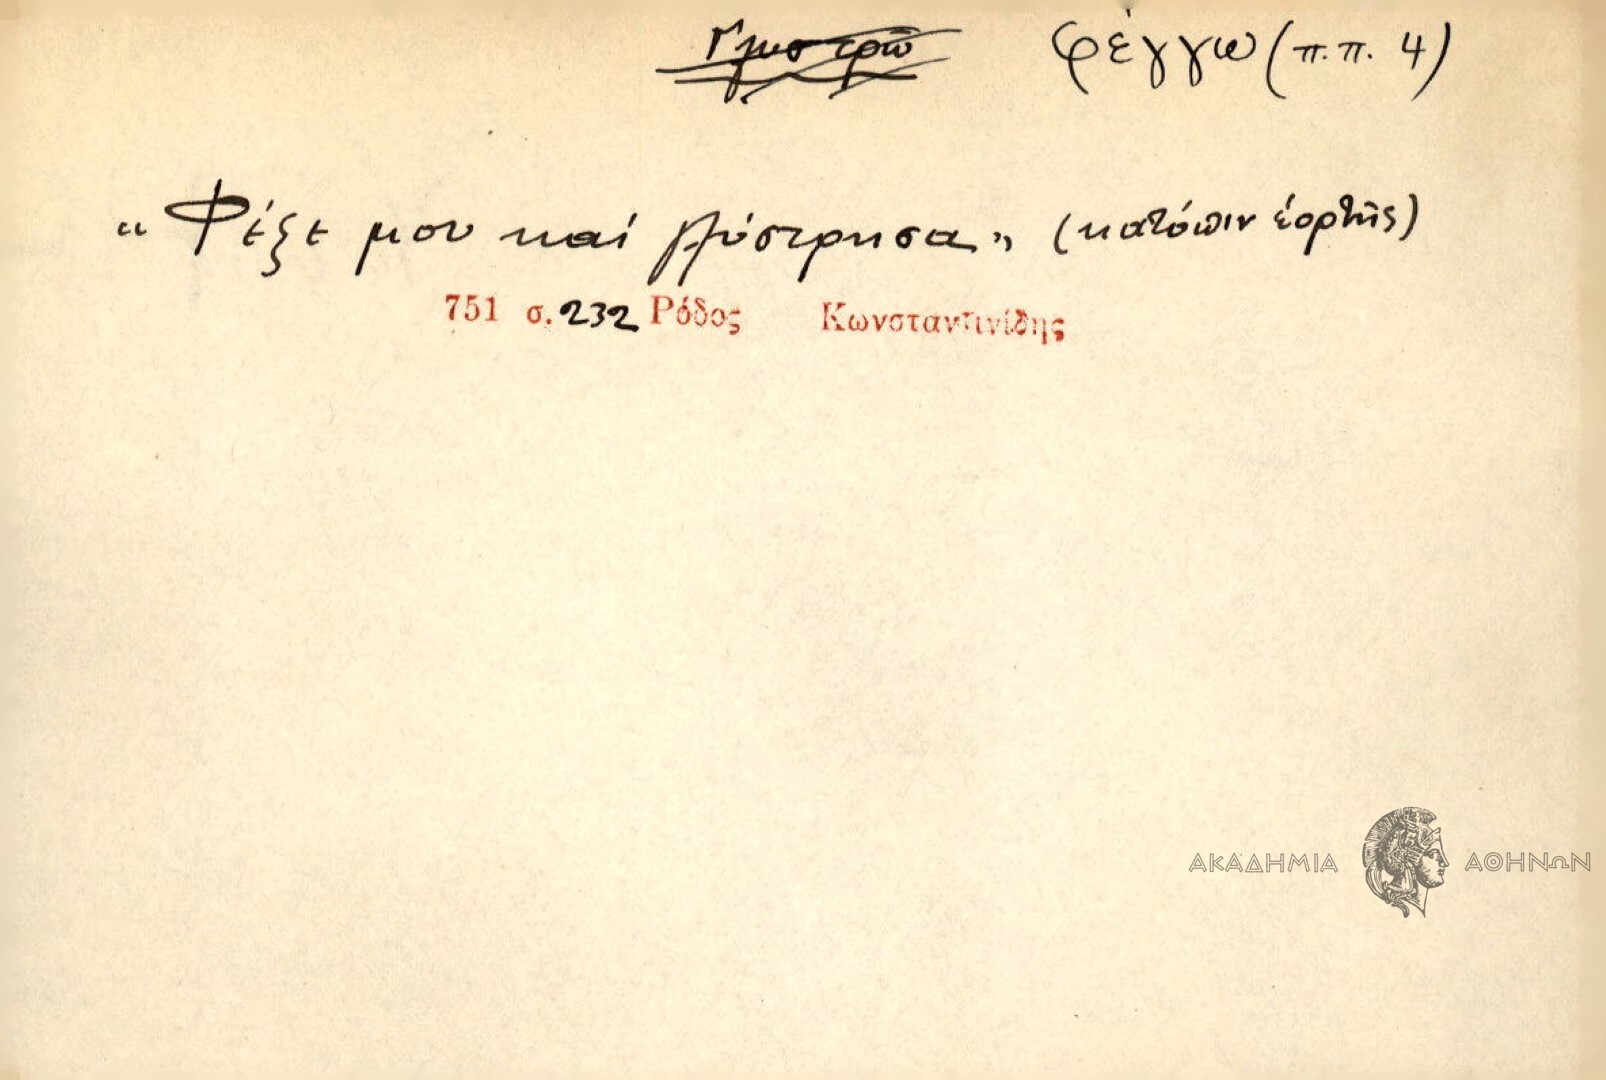 Γλυστρῶ φέγγω (π.π. 4)
"Φέξε μου καί γλύστρησα" (κατόπιν ἑορτῆς)
751 σ. 232 Ρόδος Κωνσταντινίδης
ΑΚΑΔΗΜΙΑ ΑΘΗΝΩΝ